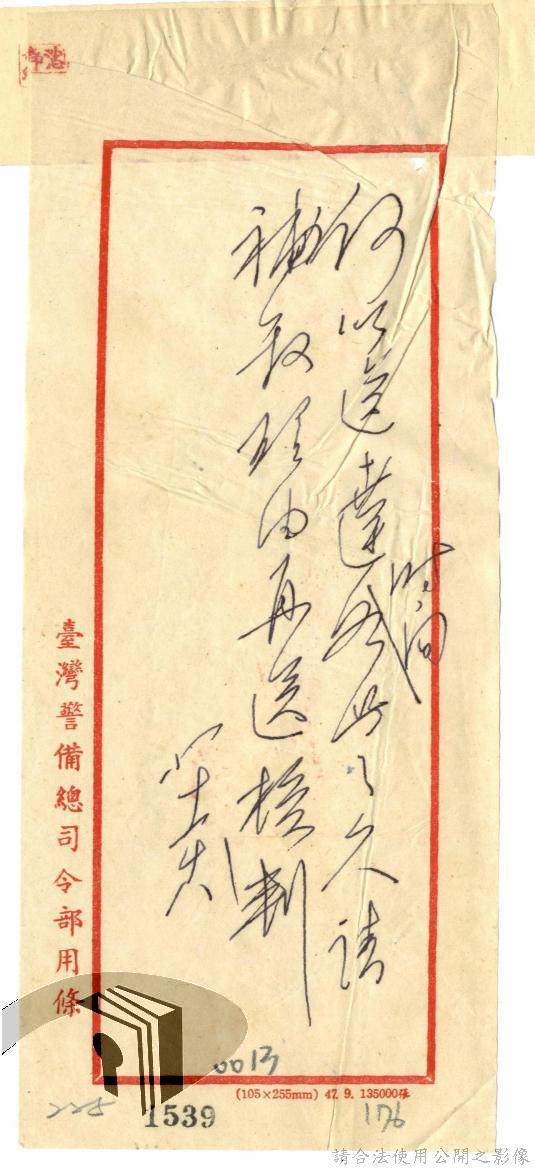 何以送達時間如此之久請
補敘理由再送核判
臺灣警備總司令部用條
0013
(105×255mm) 47. 9. 135000張
228
1539
176
請合法使用公開之影像